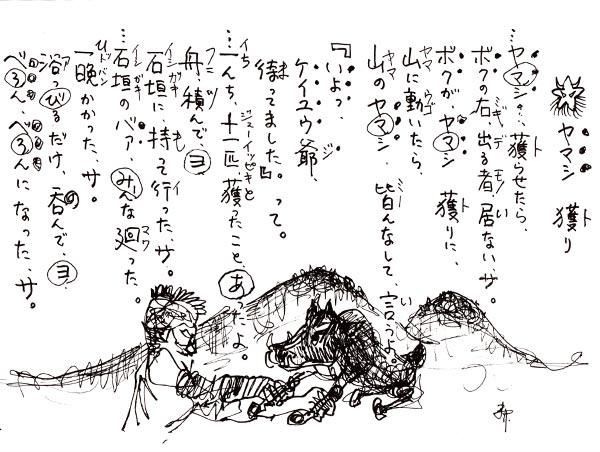 ヤマシ 獲り
…ヤマシさ、獲らせたら、
ボクの右、出る者、居ない、サ。
ボクが、ヤマシ 獲りに、
山に動いたら、
山のヤマシ、皆んなして、言うよ
『いよっ、
ケイユウ爺、
待ってました。』って。
…一んち、十一匹、獲ったこと、あったよ。
舟、積んで、ヨ
石垣に、持って行った、サ。
…石垣のバァ、みんな廻った。
一晩かかった、サ。
浴っびるだけ、呑んで、ヨ
べろん、べろんになった、サ。